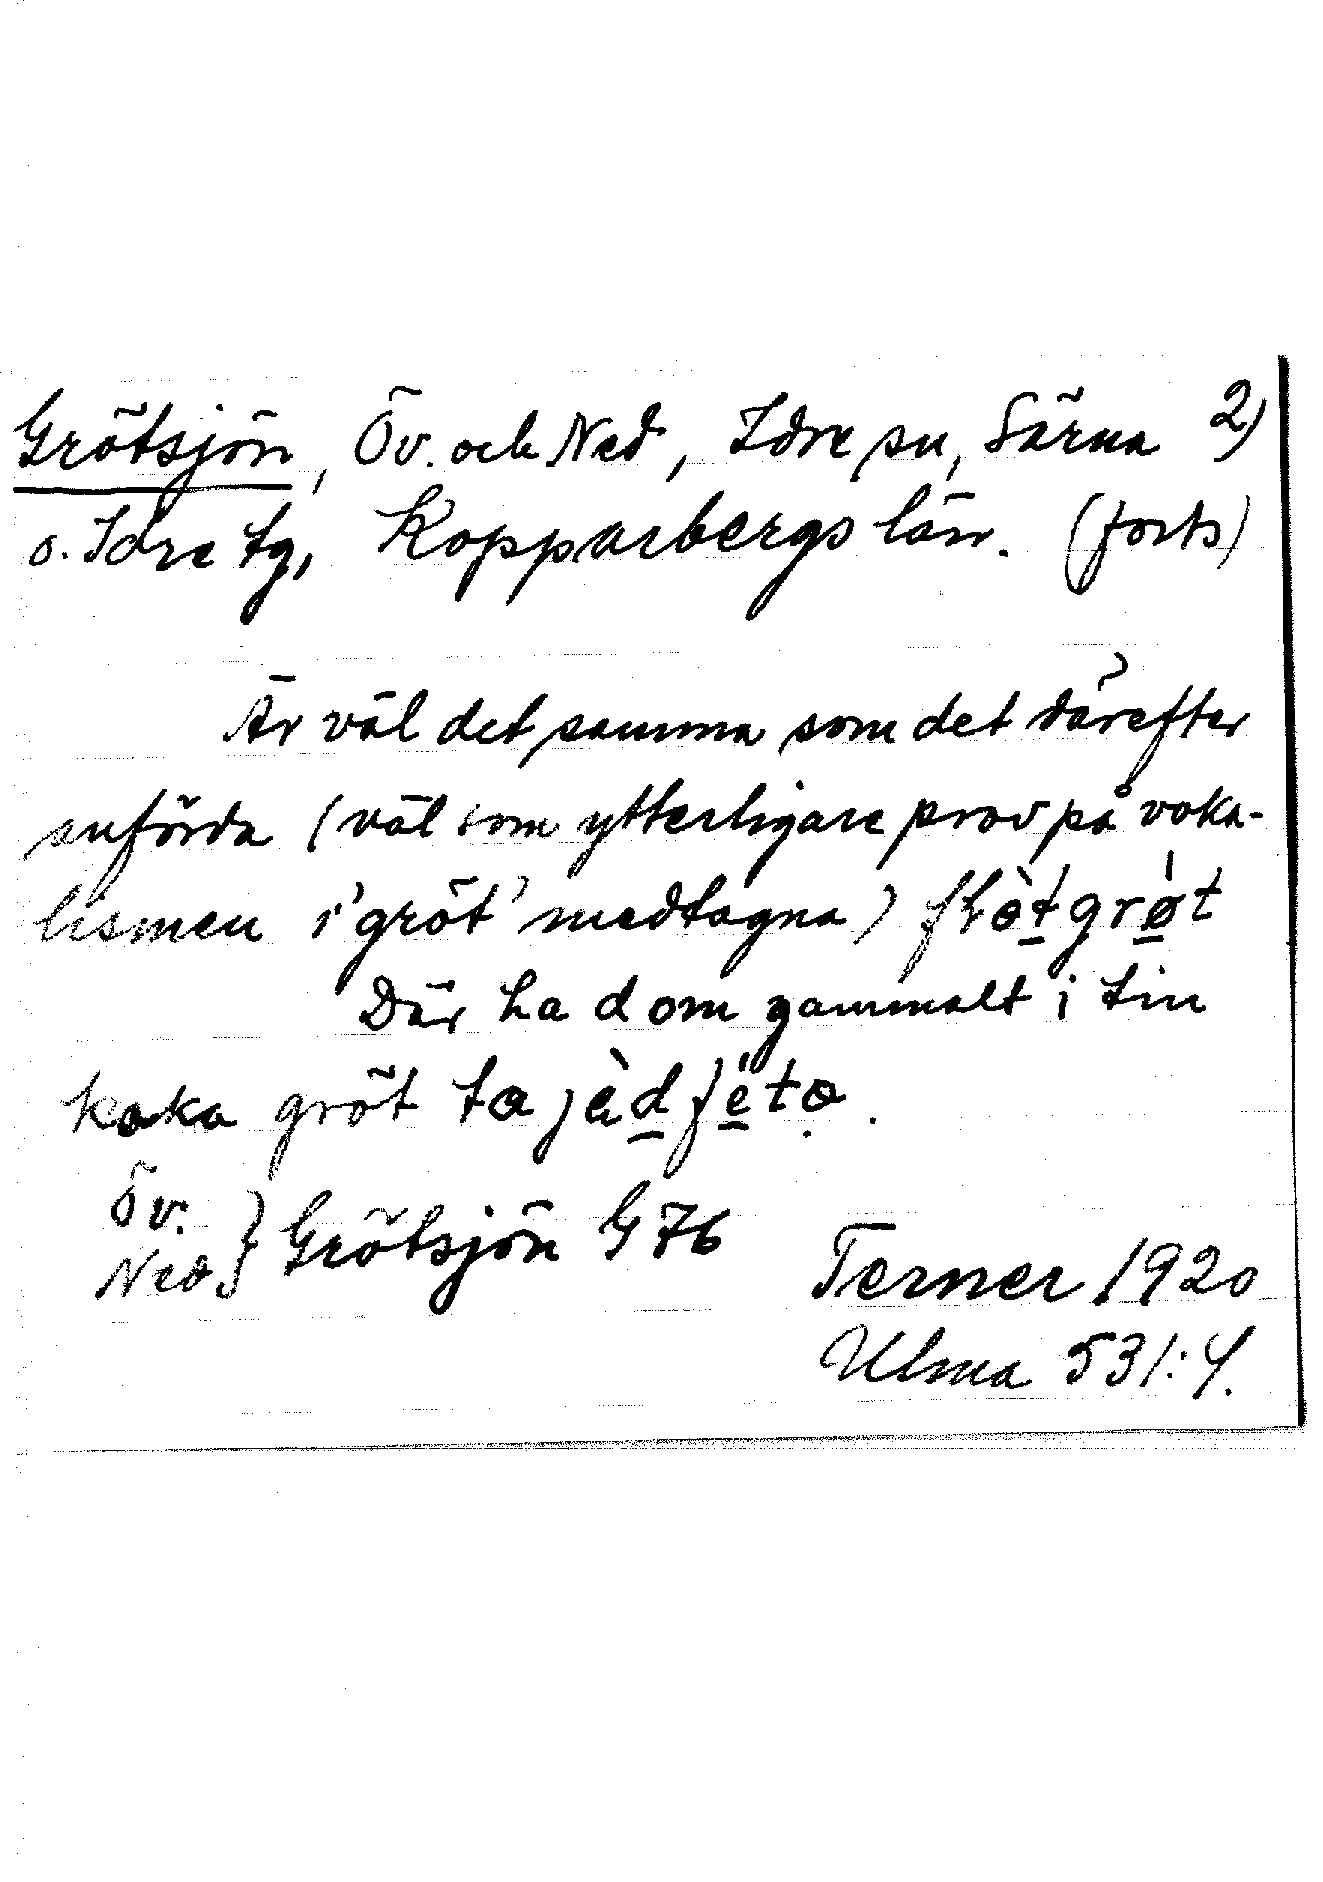 Grötsjön, Öv. och Ned, Idre sn, Särna 2)
o. Idre tg, Kopparbergs län. (forts)
Är väl det samma som det därefter
anförda (väl som ytterligare prov på voka-
lismen i 'gröt' medtagna)
Där ha dom gammalt i tin
koka gröt
Öv.
Ned } Grötsjön G 76
Terner 1920
Ulma 531:4.